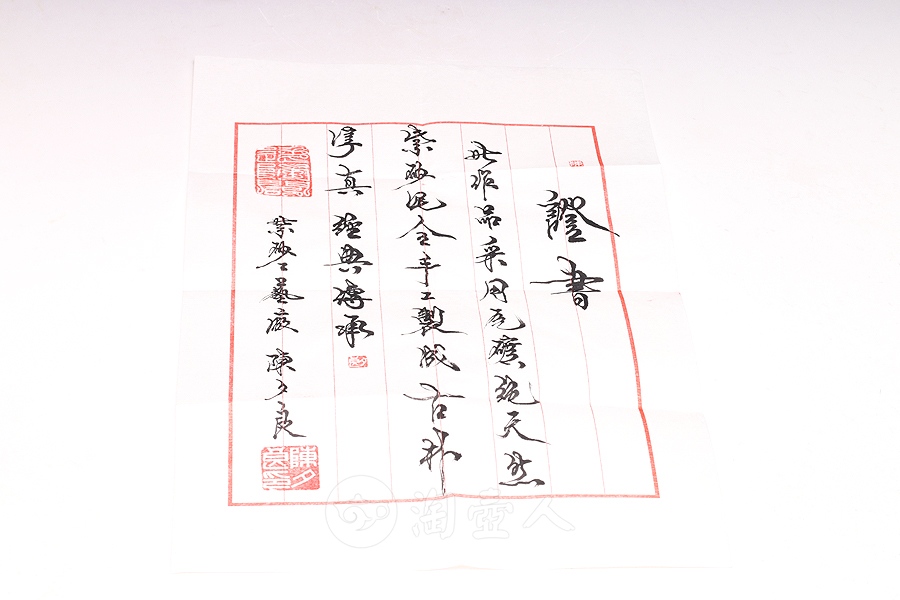 證書
此作品采用原礦純天然
紫砂泥全手工製成古朴
淳真經典傳承
紫砂工藝廠 陳夕良
陳夕良印
淘壺人